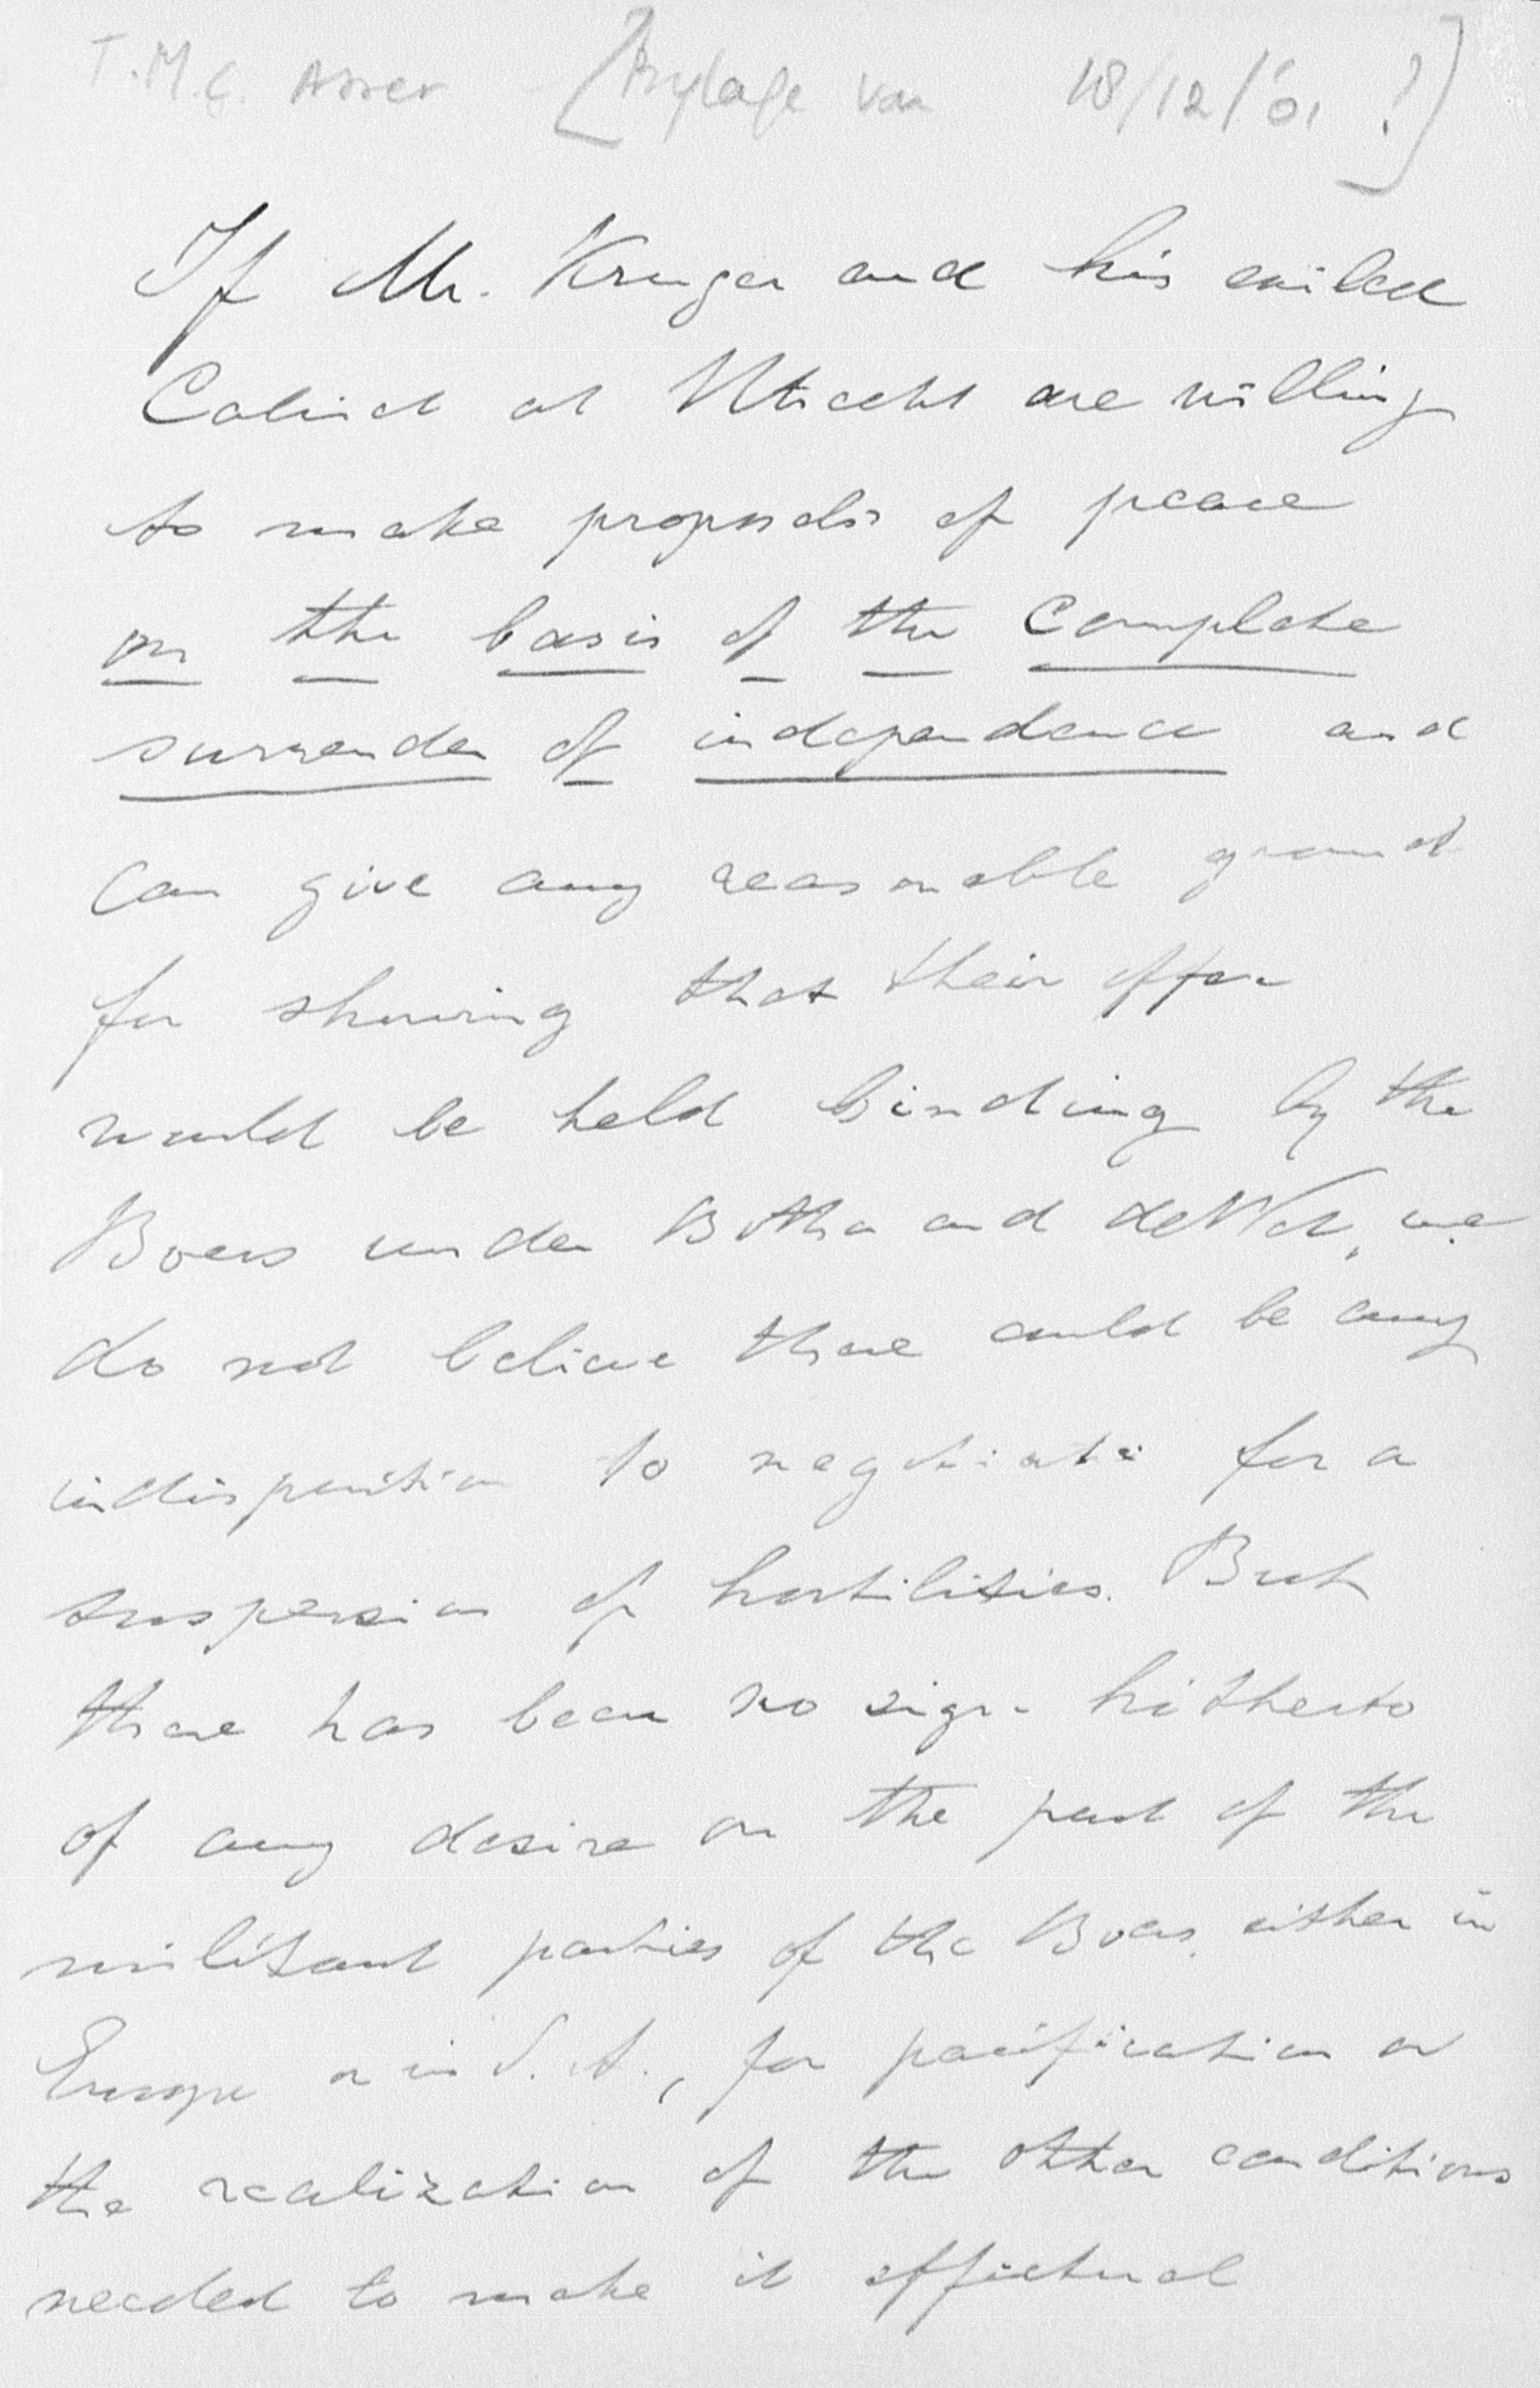 T.M.C. Asser [Bylage van 18/12/'01 ?]
If Mr. Kruger and his exiled
Cabinet at Utrecht are willing
to make proposals of peace
on the basis of the complete
surrender of independence and
can give any reasonable ground
for showing that their offer
would be held binding by the
Boers under Botha and de Wet, we
do not believe there could be any
indisposition to negotiate for a
suspension of hostilities. But
there has been no sign hitherto
of any desire on the part of the
militant parties of the Boers, either in
Europe or in S. A., for pacification or
the realization of the other conditions
needed to make it effectual